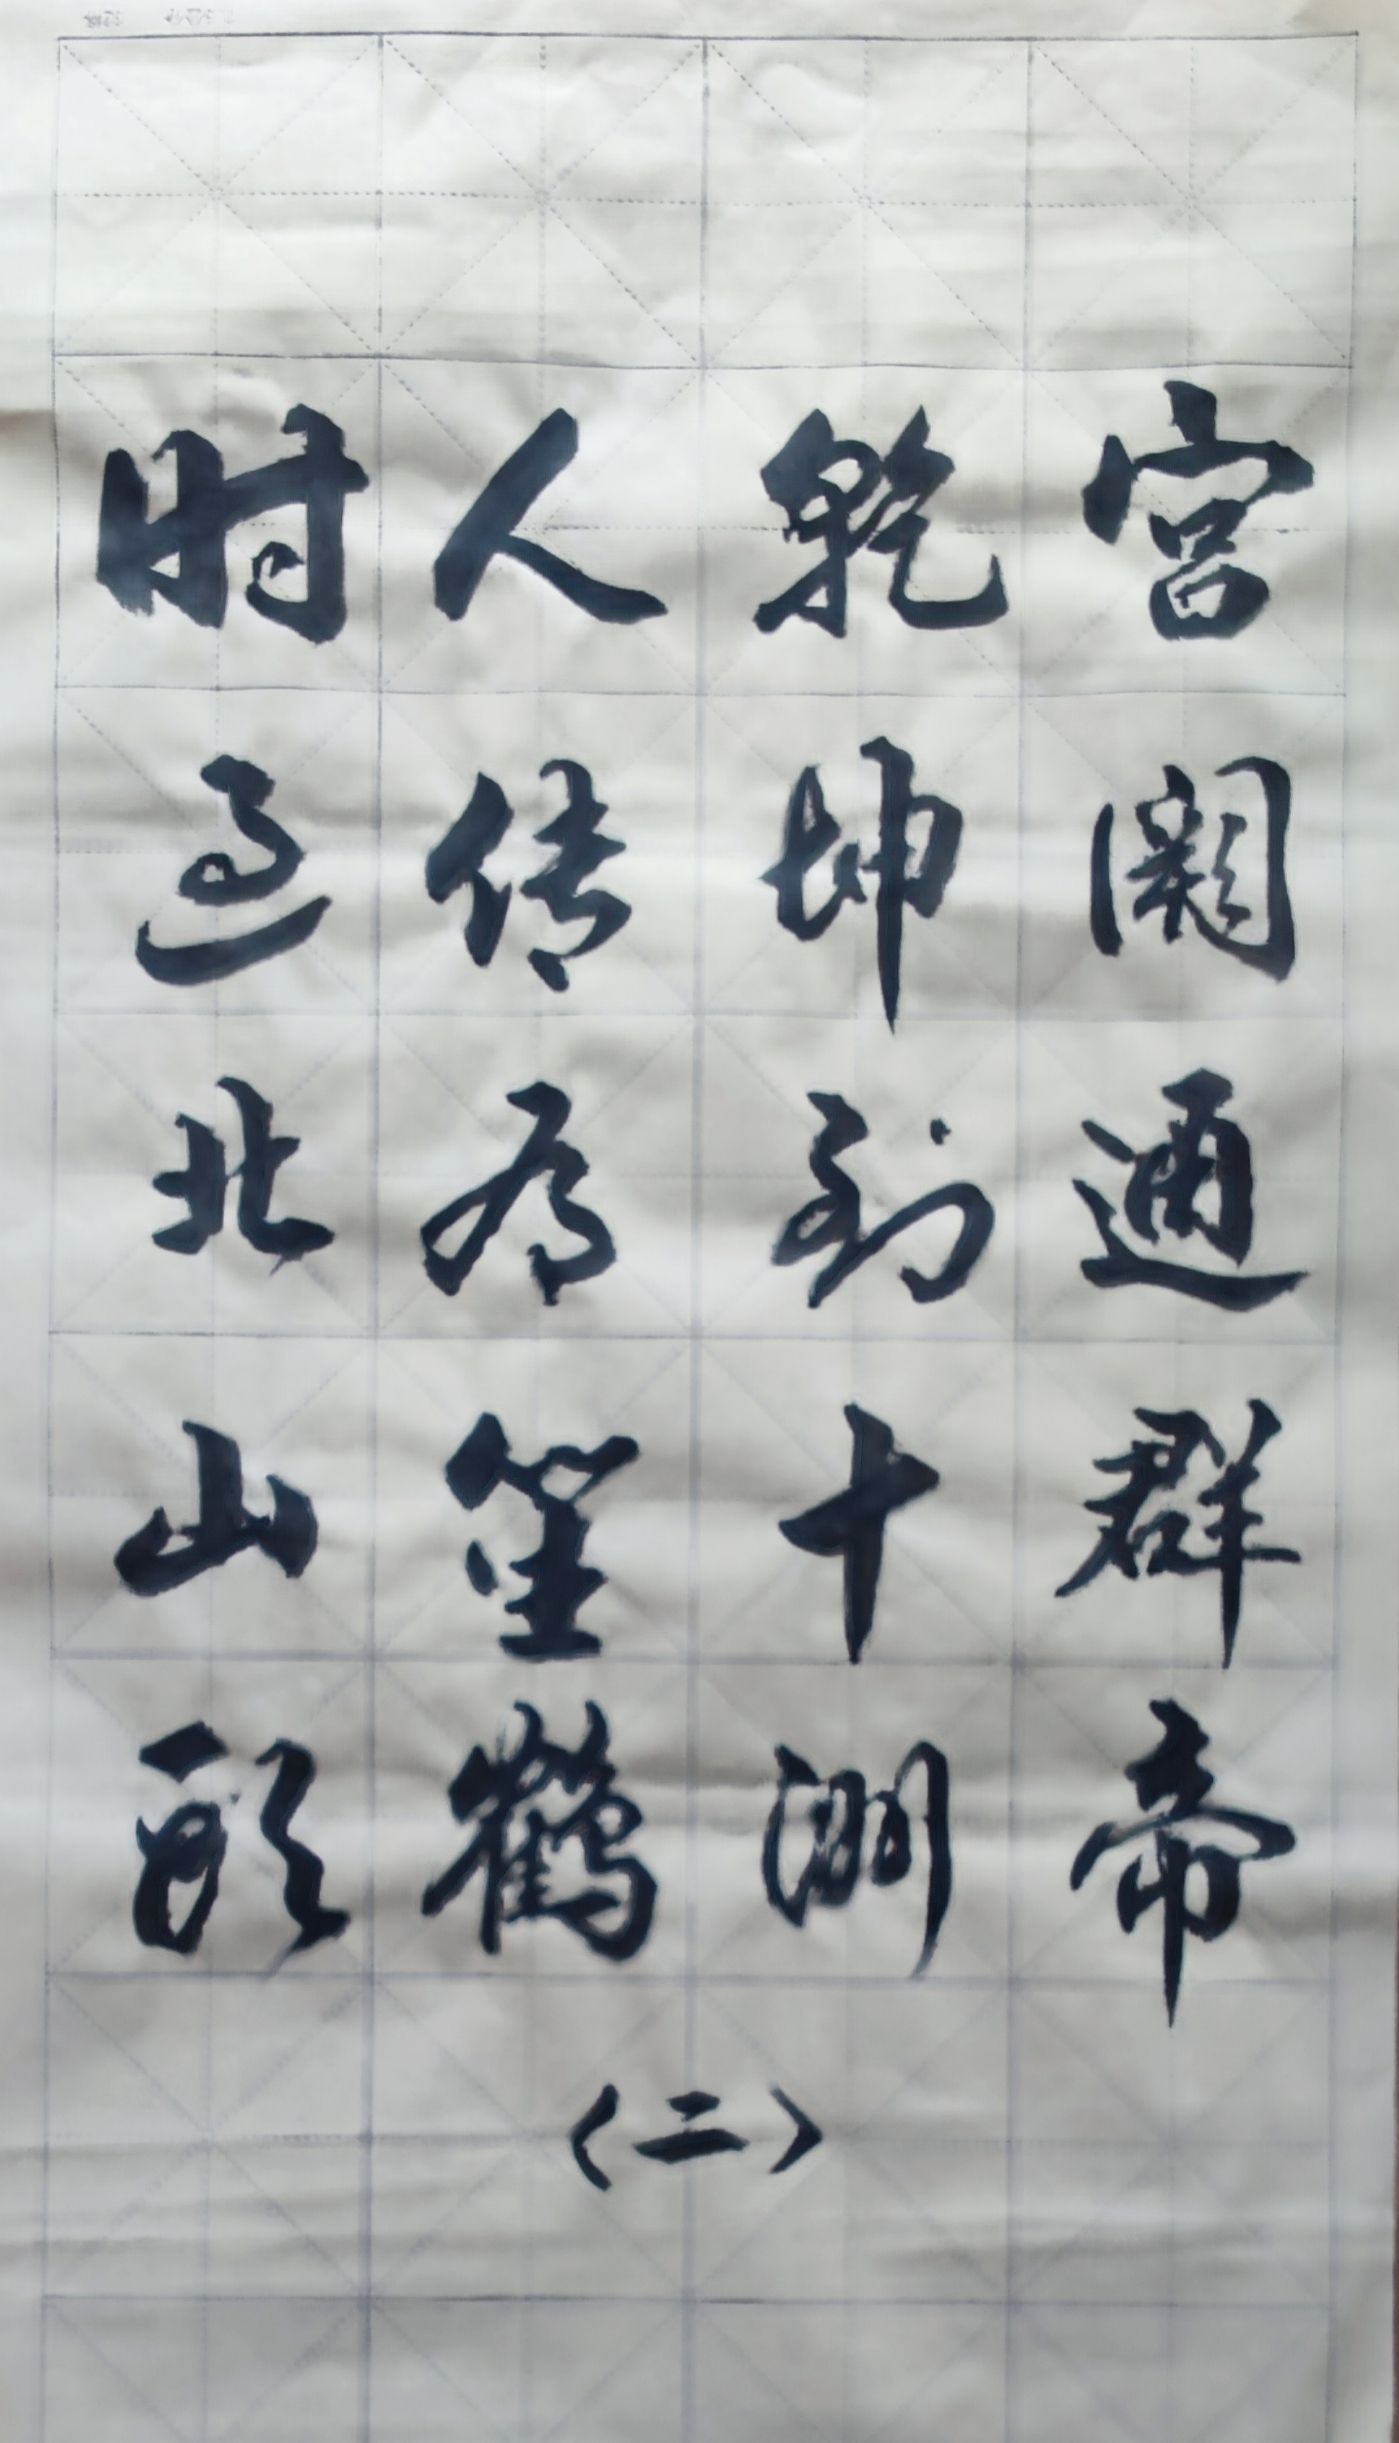 宫阙通群帝
乾坤到十洲
人传有笙鹤
时过北山头
（二）